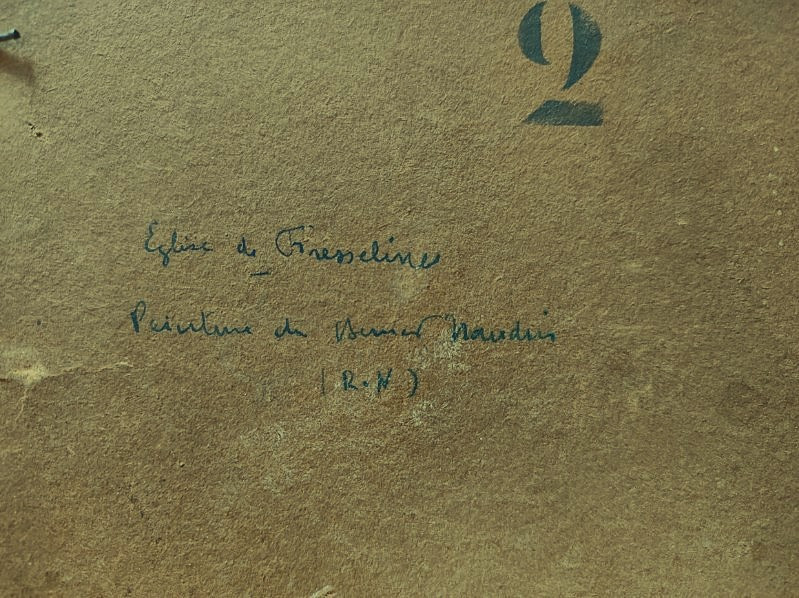 2
Eglise de Fresselines
Peinture de Bernard Naudin
(R.N)